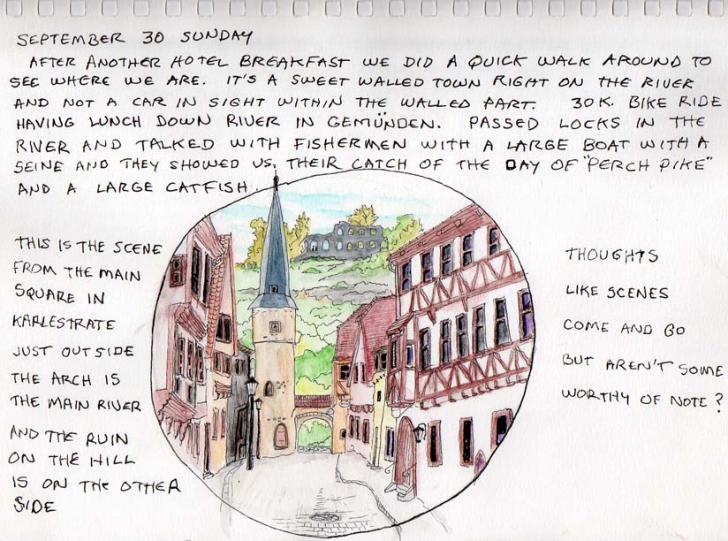 SEPTEMBER 30 SUNDAY
AFTER ANOTHER HOTEL BREAKFAST WE DID A QUICK WALK AROUND TO
SEE WHERE WE ARE. IT'S A SWEET WALLED TOWN RIGHT ON THE RIVER
AND NOT A CAR IN SIGHT WITHIN THE WALLED PART. 30 K. BIKE RIDE
HAVING LUNCH DOWN RIVER IN GEMÜNDEN. PASSED LOCKS IN THE
RIVER AND TALKED WITH FISHERMEN WITH A LARGE BOAT WITH A
SEINE AND THEY SHOWED US. THEIR CATCH OF THE DAY OF "PERCH PIKE"
AND A LARGE CATFISH.
THIS IS THE SCENE
FROM THE MAIN
SQUARE IN
KARLESTRATE
JUST OUTSIDE
THE ARCH IS
THE MAIN RIVER
AND THE RUIN
ON THE HILL
IS ON THE OTHER
SIDE
THOUGHTS
LIKE SCENES
COME AND GO
BUT AREN'T SOME
WORTHY OF NOTE?